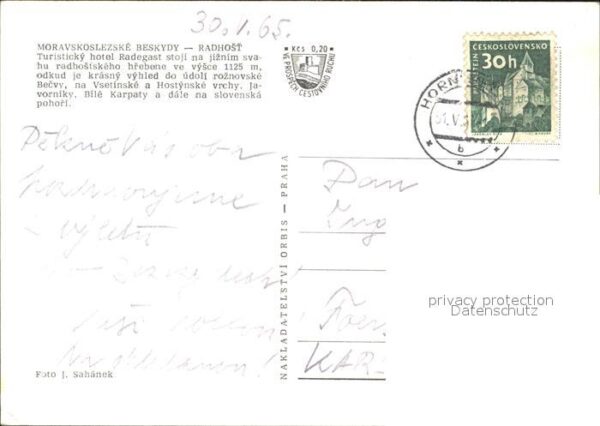 30. V. 65.
MORAVSKOSLEZSKÉ BESKYDY — RADHOŠŤ
Turistický hotel Radegast stojí na jižním sva-
hu radhošťského hřebene ve výšce 1125 m,
odkud je krásný výhled do údolí rožnovské
Bečvy, na Vsetínské a Hostýnské vrchy. Ja-
vorníky. Bílé Karpaty a dále na slovenská
pohoří.
Kčs 0,20
VE PROSPĚCH CESTOVNÍHO RUCHU
ČESKOSLOVENSKO
30h
HORN
b
Pěkně Vás oba
pozdravujeme
z výletu
Na shledanou!
NAKLADATELSTVÍ ORBIS — PRAHA
Pan
Ing
KAR
privacy protection
Datenschutz
Foto J. Sahánek